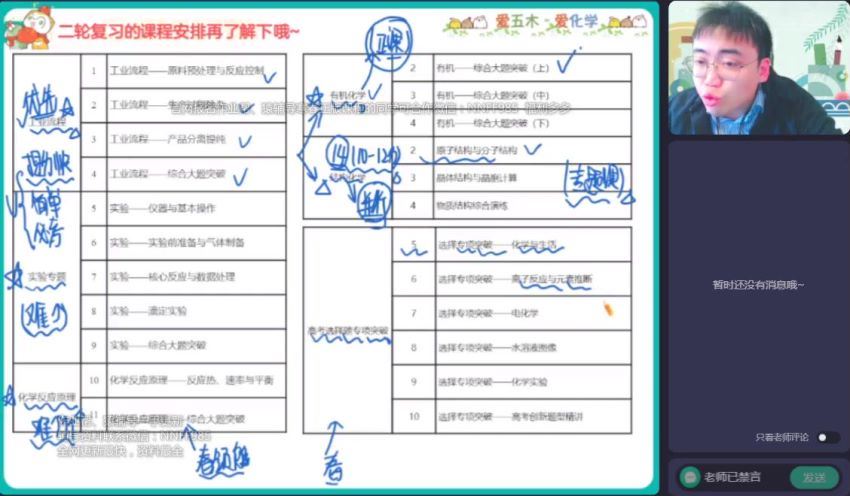 二轮复习的课程安排再了解下哦~
爱五木-爱化学
1 工业流程——原料预处理与反应控制
2
工业流程
3 工业流程——产品分离提纯
4 工业流程——综合大题突破
5 实验——仪器与基本操作
6 实验——实验前准备与气体制备
实验专题
7 实验——核心反应与数据处理
8 实验——滴定实验
9 实验——综合大题突破
化学反应原理
10 化学反应原理——反应热、速率与平衡
11 综合大题突破
优先
简单
(难)
有机化学
2 有机——综合大题突破（上）
3 有机——综合大题突破（中）
4 有机——综合大题突破（下）
结构化学
2 原子结构与分子结构
3 晶体结构与晶胞计算
4 物质结构综合演练
高考选择题专项突破
5 选择专项突破——化学与生活
6 选择专项突破——离子反应与元素推断
7 选择专项突破——电化学
8 选择专项突破——水溶液图像
9 选择专项突破——化学实验
10 选择专项突破——高考创新题型精讲
春
全网更新最快，资料最全
暂时还没有消息哦~
只看老师评论
老师已禁言
发送